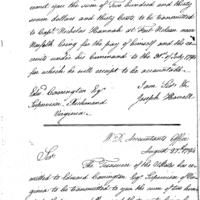 upon the sum of Two hundred and thirty
seven dollars and thirty Cents, to be transmitted
to Capt. Nicholas Hannah at Fort Nelson near
Norfolk being for the pay of himself and the re-
cruits under his Command to the 31st of July 1794
for which he will except to be accountable.
I am Sir &c
Edw. Carrington Esq.
Joseph Howell
Supervisor, Richmond
Virginia
W.D. Accountants Office
August 27th 1794
Sir
The Treasurer of the U States has re-
mitted to Edward Carrington Esq. Supervisor of Vir-
ginia to be transmitted to you the sum of two hun-